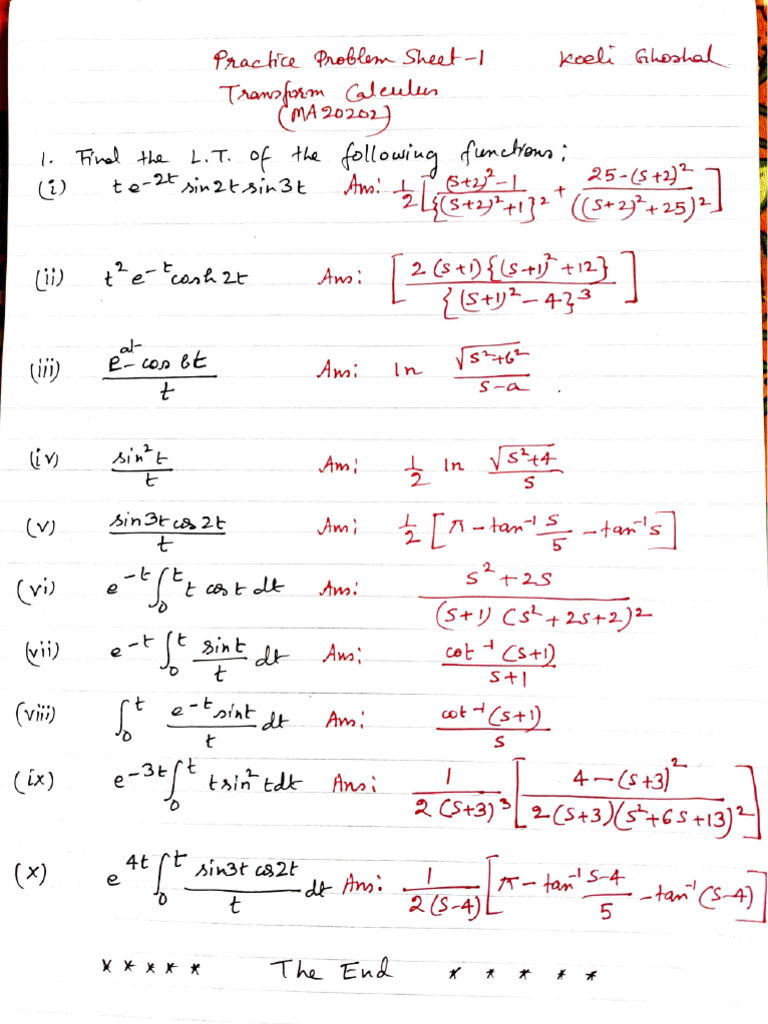 Practice Problem Sheet-1 Koeli Ghoshal
Transform Calculus
(MA20202)
1. Find the L.T. of the following functions:
(i) t e^{-2t} sin2t sin3t Ans: 1/2 [ ((s+2)^2-1)/{(s+2)^2+1}^2 + (25-(s+2)^2)/((s+2)^2+25)^2 ]
(ii) t^2 e^{-t} cosh2t Ans: [ 2(s+1){(s+1)^2+12} / {(s+1)^2-4}^3 ]
(iii) (e^{at}-cos bt)/t Ans: ln √(s^2+b^2)/(s-a) .
(iv) sin^2 t/t Ans: 1/2 ln √(s^2+4)/s
(v) sin3t cos2t/t Ans: 1/2 [π - tan^{-1} s/5 - tan^{-1} s]
(vi) e^{-t} ∫_0^t t cos t dt Ans: (s^2+2s)/((s+1)(s^2+2s+2)^2)
(vii) e^{-t} ∫_0^t sint/t dt Ans: cot^{-1}(s+1)/(s+1)
(viii) ∫_0^t e^{-t} sint/t dt Ans: cot^{-1}(s+1)/s
(ix) e^{-3t} ∫_0^t t sin^2 t dt Ans: 1/(2(s+3)^3) [ (4-(s+3)^2)/(2(s+3)(s^2+6s+13)^2) ]
(x) e^{4t} ∫_0^t sin3t cos2t/t dt Ans: 1/(2(s-4)) [π - tan^{-1} (s-4)/5 - tan^{-1}(s-4)]
* * * * * The End * * * * *